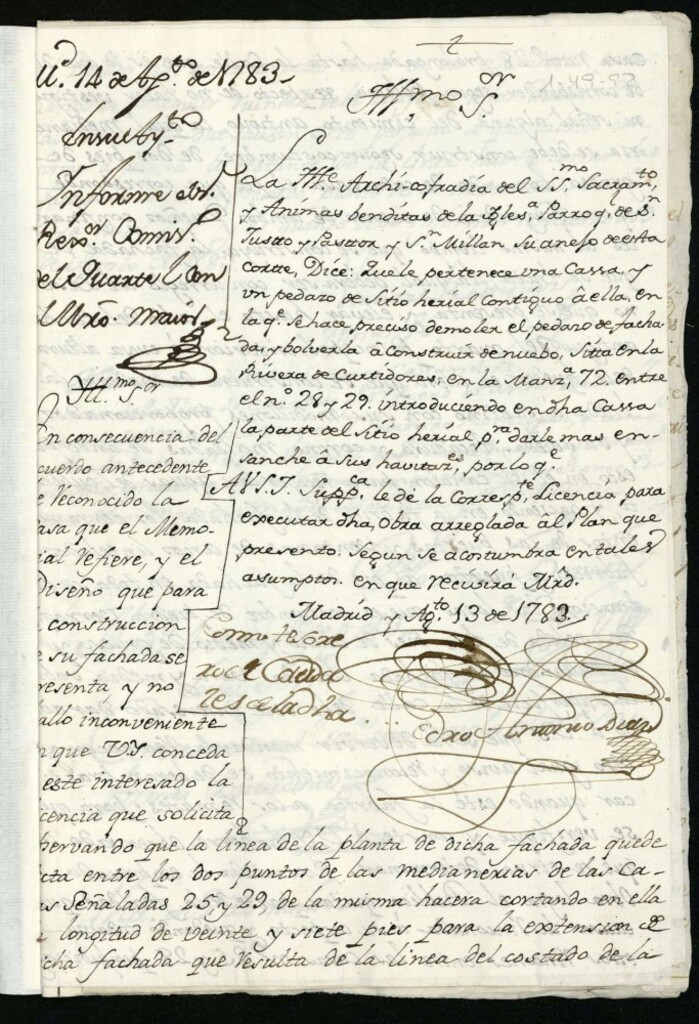 1
1-49-93
14 de Ag.to de 1783
Yll.mo S.or
En su Ay.to
Informe el S.r
Rex.or Comis.o
del Quartel con
el Mrõ. maior
La Il.e Archicofradia del SS.mo Sacram.to,
y Animas benditas de la Igles.a Parroq. de S.n
Justo y Pastor y S.n Millan, su anejo de esta
corte, Dice: Que le pertenece una Cassa, y
un pedazo de Sitio herial Contiguo â ella, en
la q.e se hace preciso demoler el pedazo de facha-
da, y bolverla â Construir de nuebo, Sitta en la
Rivera de Curtidores, en la Manz.a 72. entre
el n.o 28 y 29. introduciendo en dha Cassa
la parte del Sitio herial p.ra darle mas en-
sanche â Sus havitaz.es, por lo q.e
A V.S.I. Supp.ca le dè la Corresp.te Licencia para
executar dha, Obra arreglada âl Plan que
presento. Segun se acostumbra en tales
asumptos. en que recivirá Mrd.
Madrid y Ag.to 13 de 1783.
Como tesore
ro de Cauda
les de la dha.
Pedro Antonio Diaz
Ill.mo S.or
En consecuencia del
cuerdo antecedente
e reconocido la
asa que el Memo-
ial refiere, y el
Diseño que para
construccion
e su fachada se
resenta y no
allo inconveniente
n que V.S. conceda
este interesado la
icencia que solicita
bservando que la linea de la planta de dicha fachada quede
cta entre los dos puntos de las medianerias de las Ca-
as Señaladas 25 y 29, de la misma hacera cortando en ella
longitud de veinte y siete pies para la extension de
cha fachada que resulta de la linea del costado de la